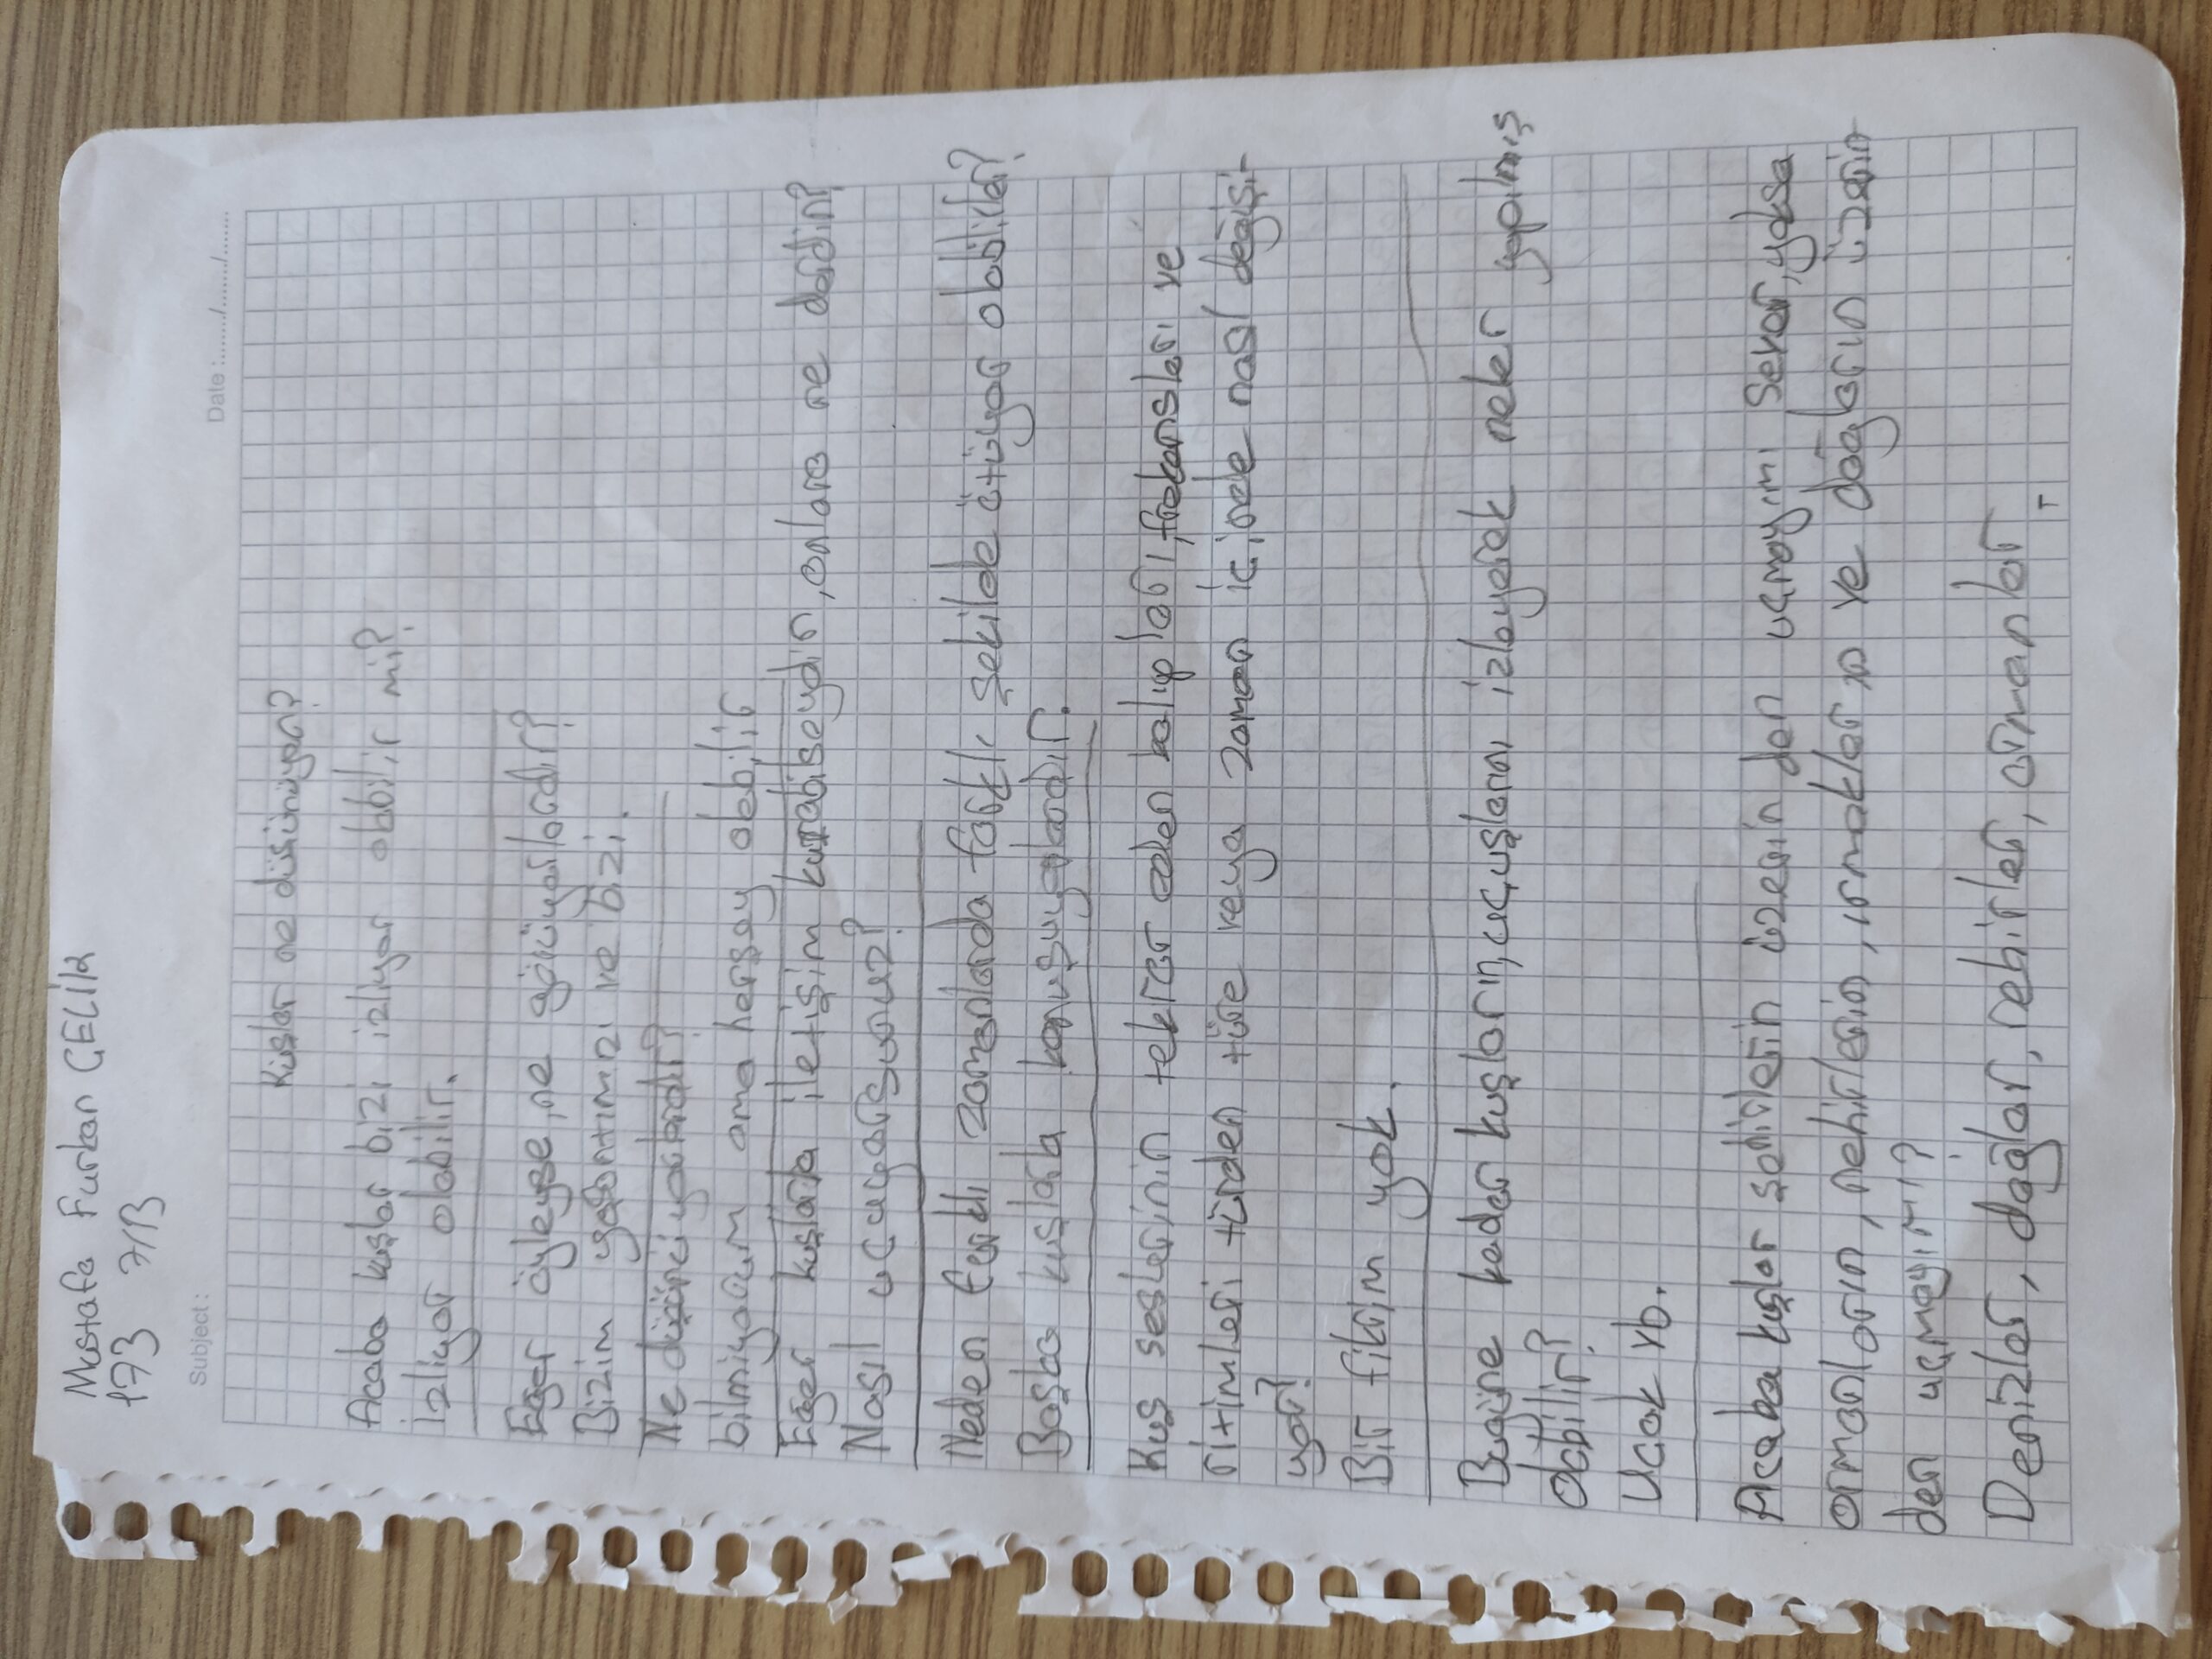 Mustafa Furkan ÇELİK
173 7/B
Subject :
Date :......./......./.......
Kuşlar ne düşünüyor?
Acaba kuşlar bizi izliyor olabilir mi?
İzliyor olabilir.
Eğer öyleyse, ne görüyorlardır?
Bizim yaşantımızı ve bizi.
Ne düşünüyorlardır?
bilmiyorum ama herşey olabilir
Eğer kuşlarla iletişim kurabilseydin, onlara ne derdin?
Nasıl uçuyorsunuz?
Neden farklı zamanlarda farklı şekilde ötüyor olabilirler?
Başka kuşlarla konuşuyorlardır.
Kuş seslerinin tekrar eden kalıpları, frekansları ve
ritimleri türden türe veya zaman içinde nasıl değişi-
yor?
Bir fikrim yok.
Bugüne kadar kuşların, uçuşlarını izleyerek neler yapılmış
olabilir?
Uçak vb.
Acaba kuşlar şehirlerin üzerin den uçmayı mı sever, yoksa
ormanların, nehirlerin, ırmakların ve dağların üzerin
den uçmayı mı?
Denizler, dağlar, nehirler, ormanlar